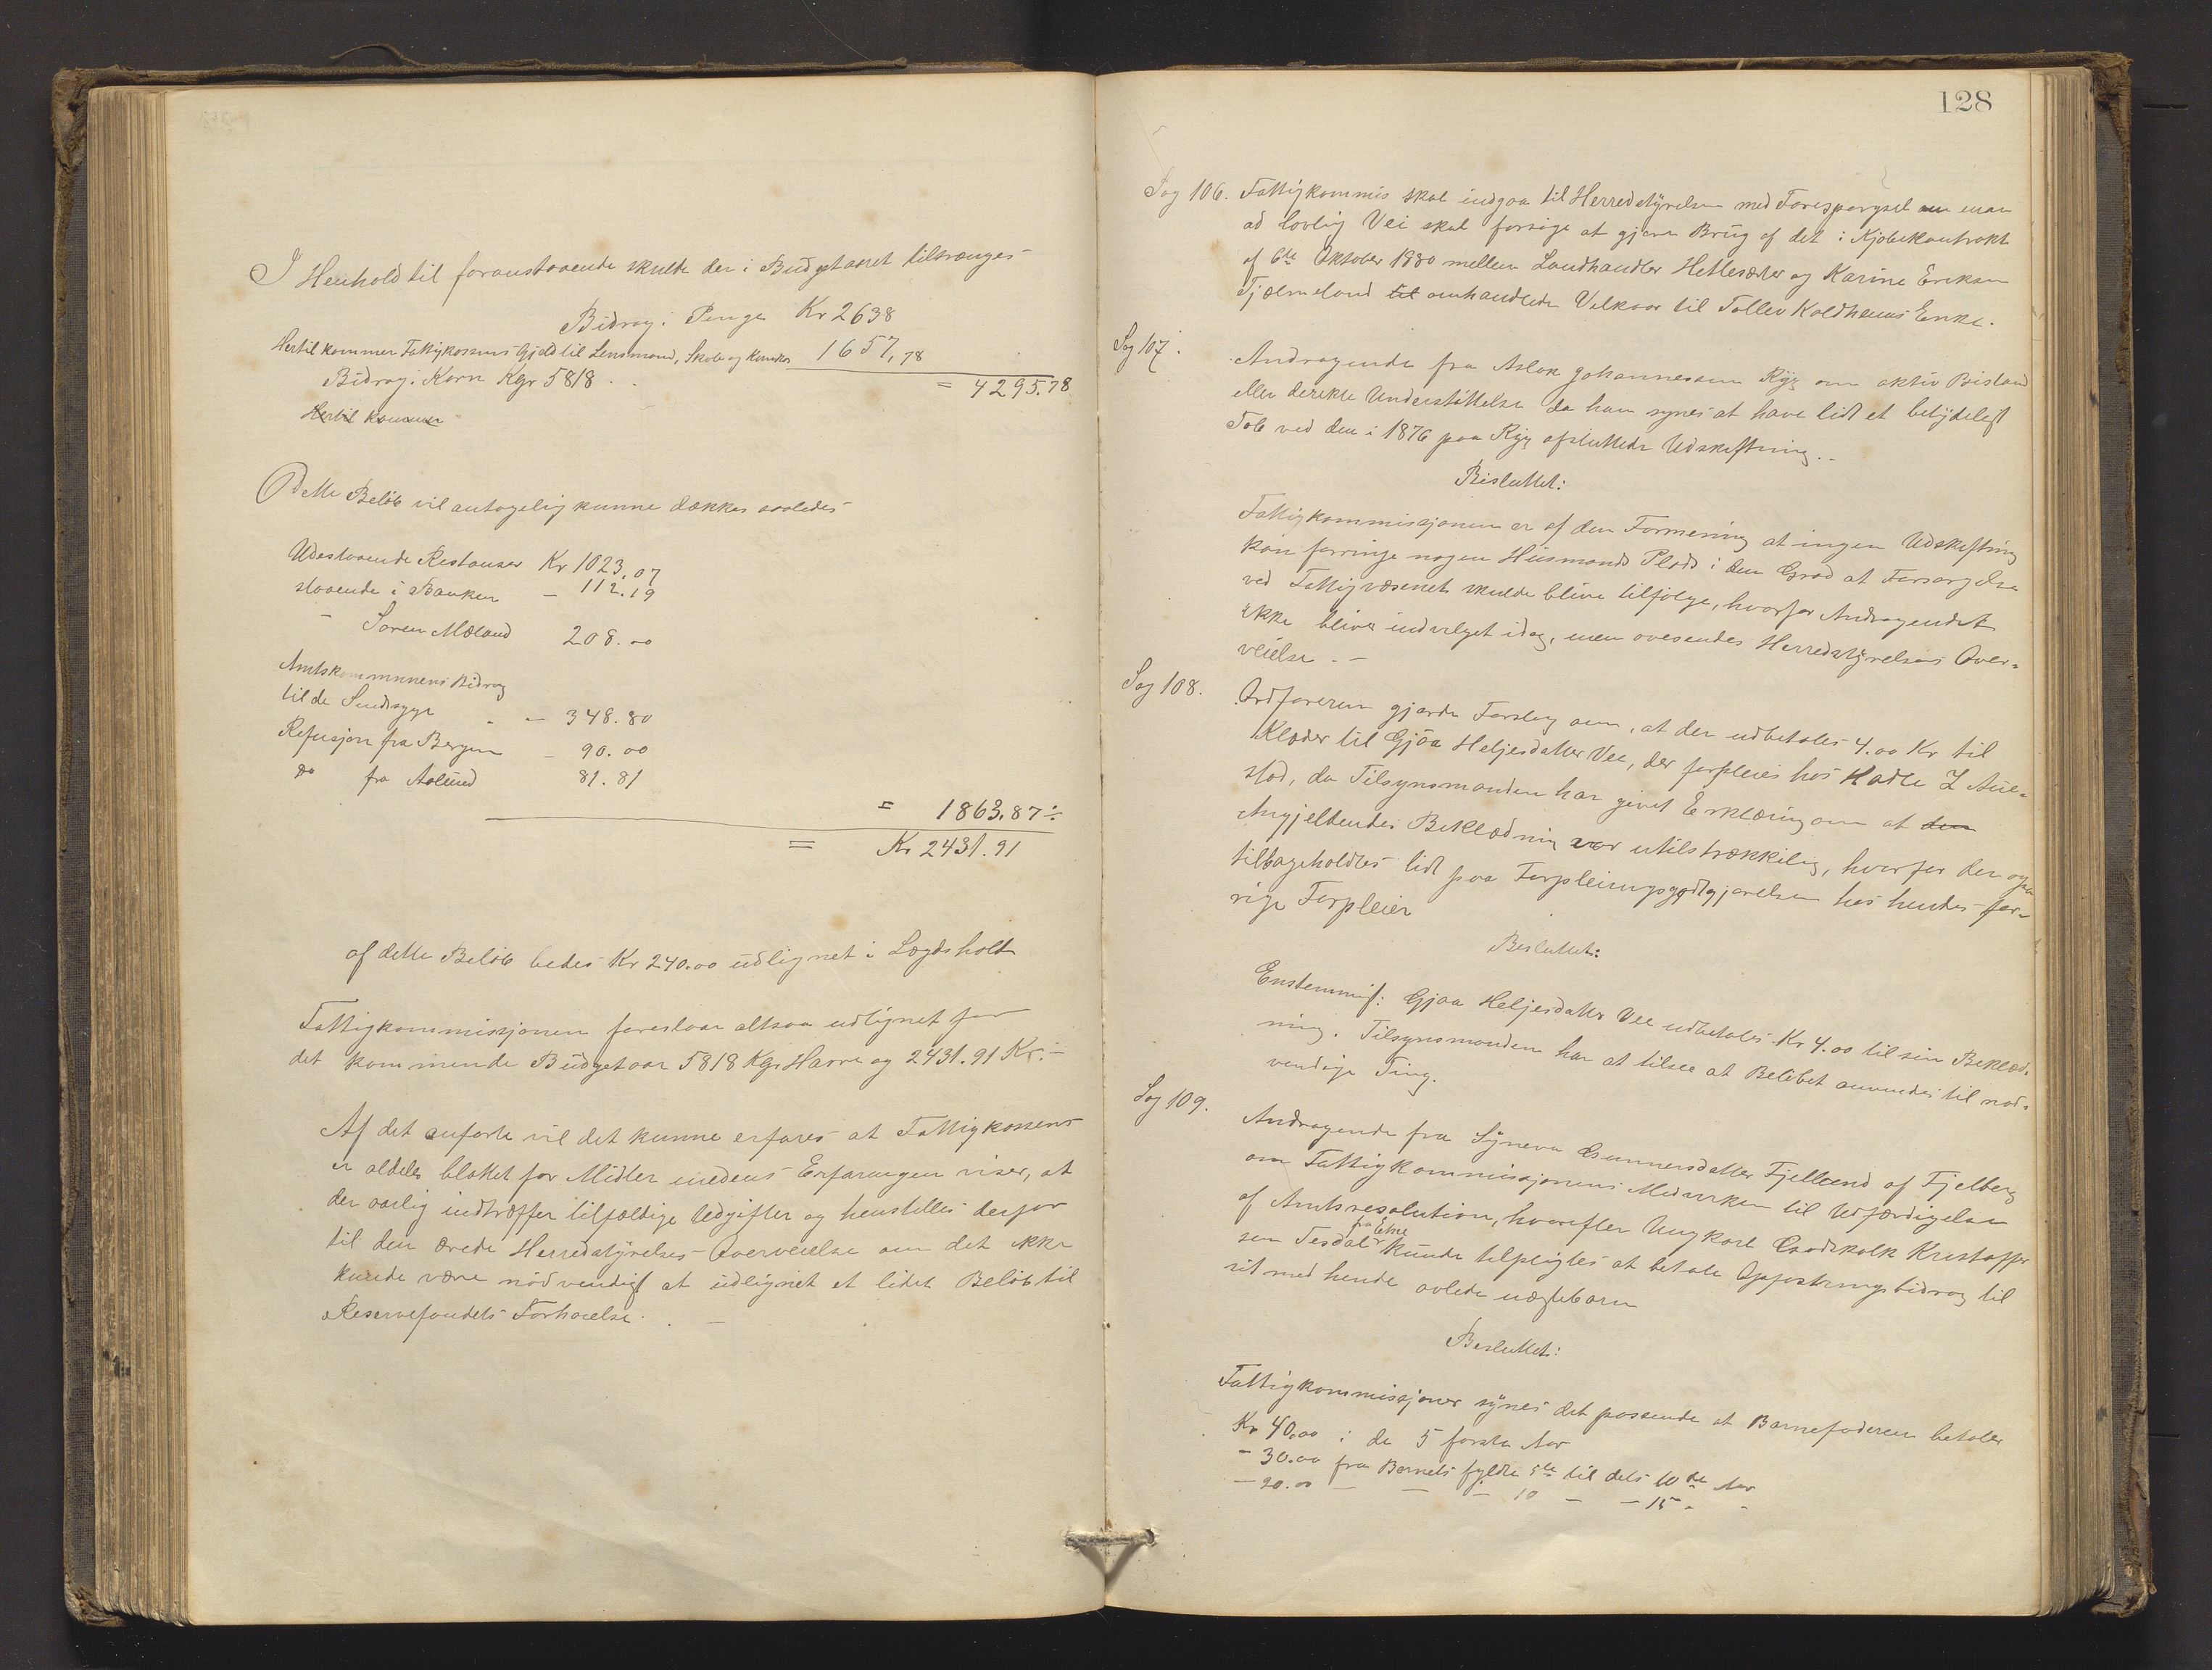 I Henhold til foranstaaende skulde der i Budgetaaret tiltrænges
Bidrag i Penge Kr 2638
Hertil kommer Fattigkassens Gjeld til Lensmand, Skole og 1657,78
= 4295.78
Bidrag i Korn Kgr 5818
Hertil kommer
Dette Beløb vil antagelig kunne dækkes saaledes
Udestaaende Restanser Kr 1023,07
staaende i Banken – 112.19
– Søren Mæland 208.00
Amtskommunens Bidrag
til de Sindssyge – 348.80
Refusjon fra Bergen – 90.00
do fra Aalund 81.81
= 1863.87 ÷
= Kr 2431.91
af dette Beløb bedes Kr 240.00 udlignet i Lægdshold
Fattigkommissjonen foreslaar altsaa udlignet for
det kommende Budgetaar 5818 Kgr Havre og 2431.91 Kr. –
Af det anførte vil det kunne erfares at Fattigkassens
er aldeles blottet for Midler medens Erfaringen viser, at
der aarlig indtræffer tilfældige Udgifter og henstilles derfor
til den ærede Herredstyrelses Overveielse om det ikke
kunde være nødvendigt at udlignet et lidet Beløb til
Reservefondets Forhøielse. –
128
Sag 106. Fattigkommis skal indgaa til Herredstyrelsen med Forespørgsel om man
ad lovlig Vei skal forsøge at gjøre Brug af det i Kjøbekontrakt
af 6te Oktober 1880 mellem Landhandler Hetlesæter og Karine Eriksen
Tjælmeland til omhandlede Vilkaar til Tollev Koldheims Enke.
Sag 107. Andragende fra Aslak Johannesen Ryg om aktiv Bistand
eller direkte Understøttelse da han synes at have lidt et betydeligt
Tab ved den i 1876 paa Ryg afsluttede Udskiftning. –
Besluttet:
Fattigkommissjonen er af den Formening at ingen Udskiftning
kan forringe nogen Husmands Plads i den Grad at Forsørgelse
ved Fattigvæsenet skulde blive tilfølge, hvorfor Andragendet
ikke bliver indvilget idag, men oversendes Herredstyrelsens Over-
veielse. –
Sag 108. Ordføreren gjorde Forslag om, at der udbetales 4.00 Kr til
Klæder til Gjøa Heljesdatter Vee, der forpleies hos Hadle L Aue-
stad, da Tilsynsmanden har givet Erklæring om at den
Angjeldendes Beklædning var utilstrækkelig, hvorfor der ogsaa
tilbageholdtes lidt paa Forpleiningsgodtgjørelsen hos hendes for-
rige Forpleier
Besluttet:
Enstemmigt: Gjøa Heljesdatter Vee udbetales Kr 4.00 til sin Beklæd-
ning. Tilsynsmanden har at tilsee at Beløbet anvendes til nød-
vendige Ting.
Sag 109. Andragende fra Synneva Gunnersdatter Fjelland af Fjelberg
om Fattigkommissjonens Medvirken til Udfærdigelse
af Amtsresolution, hvorefter Ungkarl Godskalk Kristoffer
sen Tesdal fra Etne kunde tilpligtes at betale Opfostringsbidrag til
sit med hende avlede uægtebarn
Besluttet:
Fattigkommissjonen synes det passende at Barnefaderen betaler
Kr 40.00 i de 5 første Aar
– 30.00 fra Barnets fyldte 5te til dets 10de Aar
– 20.00 – – – 10 – – 15 – –